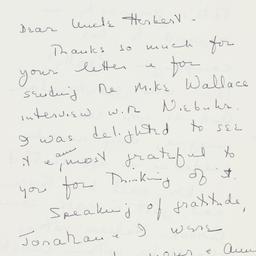 Dear Uncle Herbert -
Thanks so much for
your letter & for
sending the Mike Wallace
interview with Niebuhr.
I was delighted to see
it & am most grateful to
you for thinking of it.
Speaking of gratitude,
Jonathan & I were
& Ann